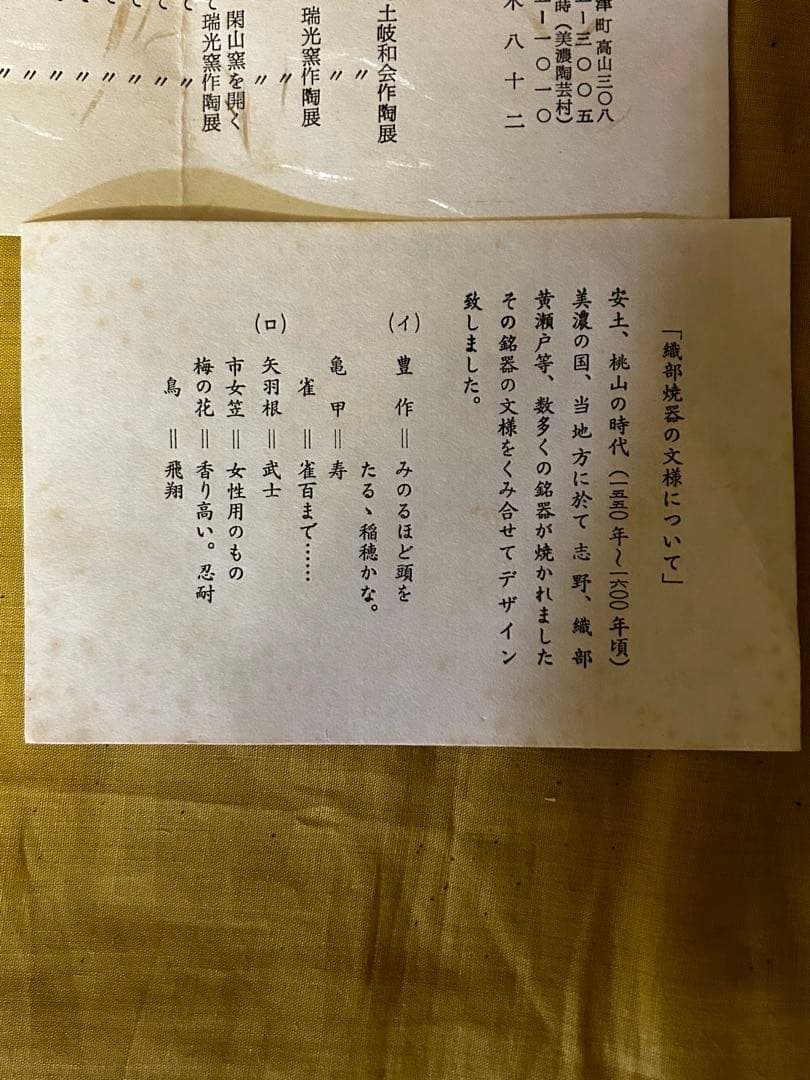 津町高山三〇八
一ー三〇〇五
時(美濃陶芸村)
一ー一〇一〇
木八十二
土岐和会作陶展
〃
〃
瑞光窯作陶展
〃
〃
閑山窯を開く
て瑞光窯作陶展
て〃
て〃
て〃
て〃
〃
〃
〃
〃
「織部焼器の文様について」
安土、桃山の時代(一五五〇年〜一六〇〇年頃)
美濃の国、当地方に於て志野、織部
黄瀬戸等、数多くの銘器が焼かれました
その銘器の文様をくみ合せてデザイン
致しました。
(イ)豊作=みのるほど頭を
たるゝ稲穂かな。
亀甲=寿
雀=雀百まで……
(ロ)矢羽根=武士
市女笠=女性用のもの
梅の花=香り高い。忍耐
鳥=飛翔